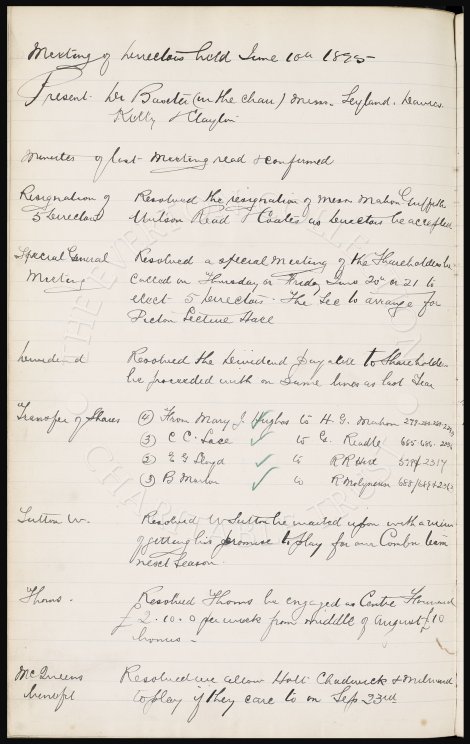 Meeting of Directors held June 10th 1895
Present Dr Baxter (in the chair) Messrs. Leyland. Davies
Kelly & Clayton
Minutes of last Meeting read & confirmed
Resignation of Resolved the resignation of Messrs Mahon Griffiths
5 Directors Wilson Read & Coates as Directors be accepted
Special General Resolved a special Meeting of the Shareholders be
Meeting called on Thursday or Friday June 20 or 21 to
elect 5 Directors. The Sec to arrange for
Picton Lecture Hall
Dividend Resolved the Dividend payable to Shareholders
be proceeded with on same lines as last Year
Transfer of Shares (4) From Mary J Hughes to H. G. Mahon
(3) C. C. Lace to G.
(2) Lloyd to R R
(3) B to R Molyneux
Sutton W. Resolved W Sutton be waited upon with a view
of getting his promise to play for our Combn team
next Season.
Thoms. Resolved Thoms be engaged as Centre Forward
£2.10.0 per week from middle of August £10
bonus
McQueens Resolved we allow Holt Chadwick & Milward
benefit to play if they care to on Sep 23rd
THE EVERTON COLLECTION
CHARITABLE TRUST